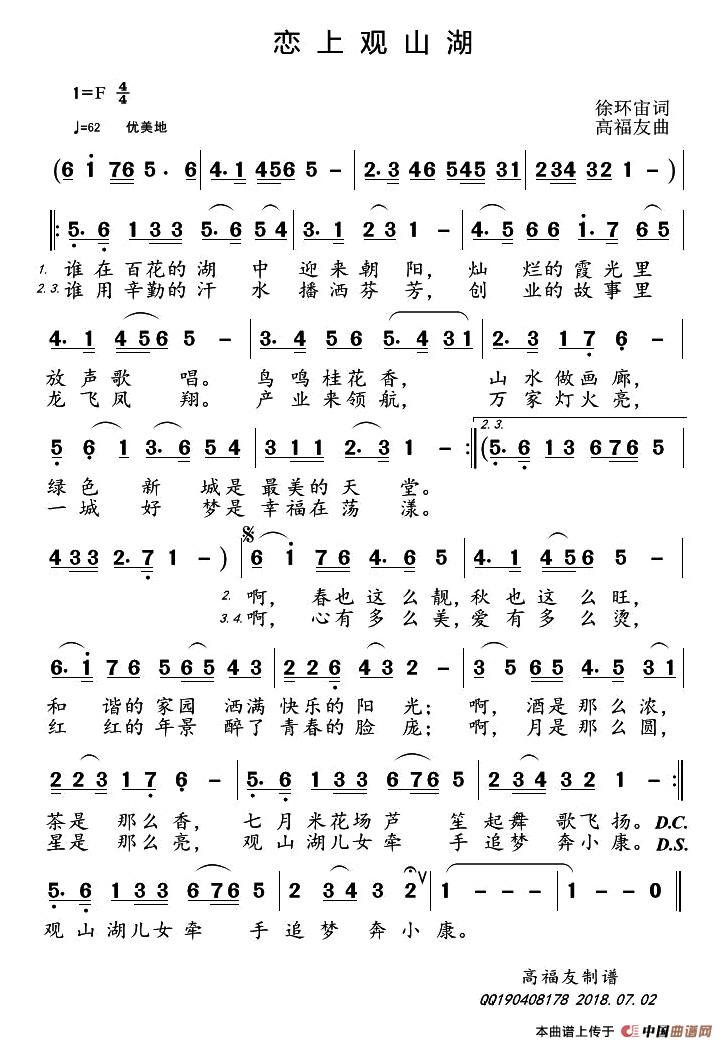 恋上观山湖
1=F 4/4
徐环宙词
♩=62 优美地
高福友曲
(6 1 76 5. 6 | 4. 1 456 5 - | 2. 3 46 545 31 | 234 32 1 - )
‖: 5. 6 133 5. 6 54 | 3. 1 231 - | 4. 5 66 1. 7 65
1. 谁在百花的湖 中 迎来朝阳， 灿 烂的霞光里
2. 3. 谁用辛勤的汗 水 播洒芬芳， 创 业的故事里
4. 1 456 5 - | 3. 4 56 5. 4 31 | 2. 3 17 6 -
放声歌 唱。 鸟鸣桂花香， 山水做画廊，
龙飞凤 翔。 产业来领航， 万家灯火亮，
2. 3.
5 6 1 3. 6 54 | 311 2. 3 1 - :‖ (5. 6 13 6765 5
绿色 新 城是最美的天 堂。
一城 好 梦是幸福在荡 漾。
433 2. 7 1 - ) | 6 1 76 4. 6 5 | 4. 1 456 5 -
2. 啊， 春也这么靓，秋也这么旺，
3. 4. 啊， 心有多么美，爱有多么烫，
6. 1 76 5654 3 | 226 432 - | 3 5 656 4. 5 31
和 谐的家园 洒满快乐的阳 光； 啊，酒是那么浓，
红 红的年景 醉了青春的脸 庞； 啊，月是那么圆，
2 23 17 6 - | 5. 6 133 6765 | 2 234 32 1 - :‖
茶是 那么香， 七月米花场芦 笙起舞 歌飞扬。D.C.
星是 那么亮， 观山湖儿女牵 手追梦 奔小康。D.S.
5. 6 133 6765 | 2 34 3 2 | 1 - - - | 1 - - 0 ‖
观山湖儿女牵 手追梦 奔小康。
高福友制谱
QQ190408178 2018.07.02
本曲谱上传于 中国曲谱网